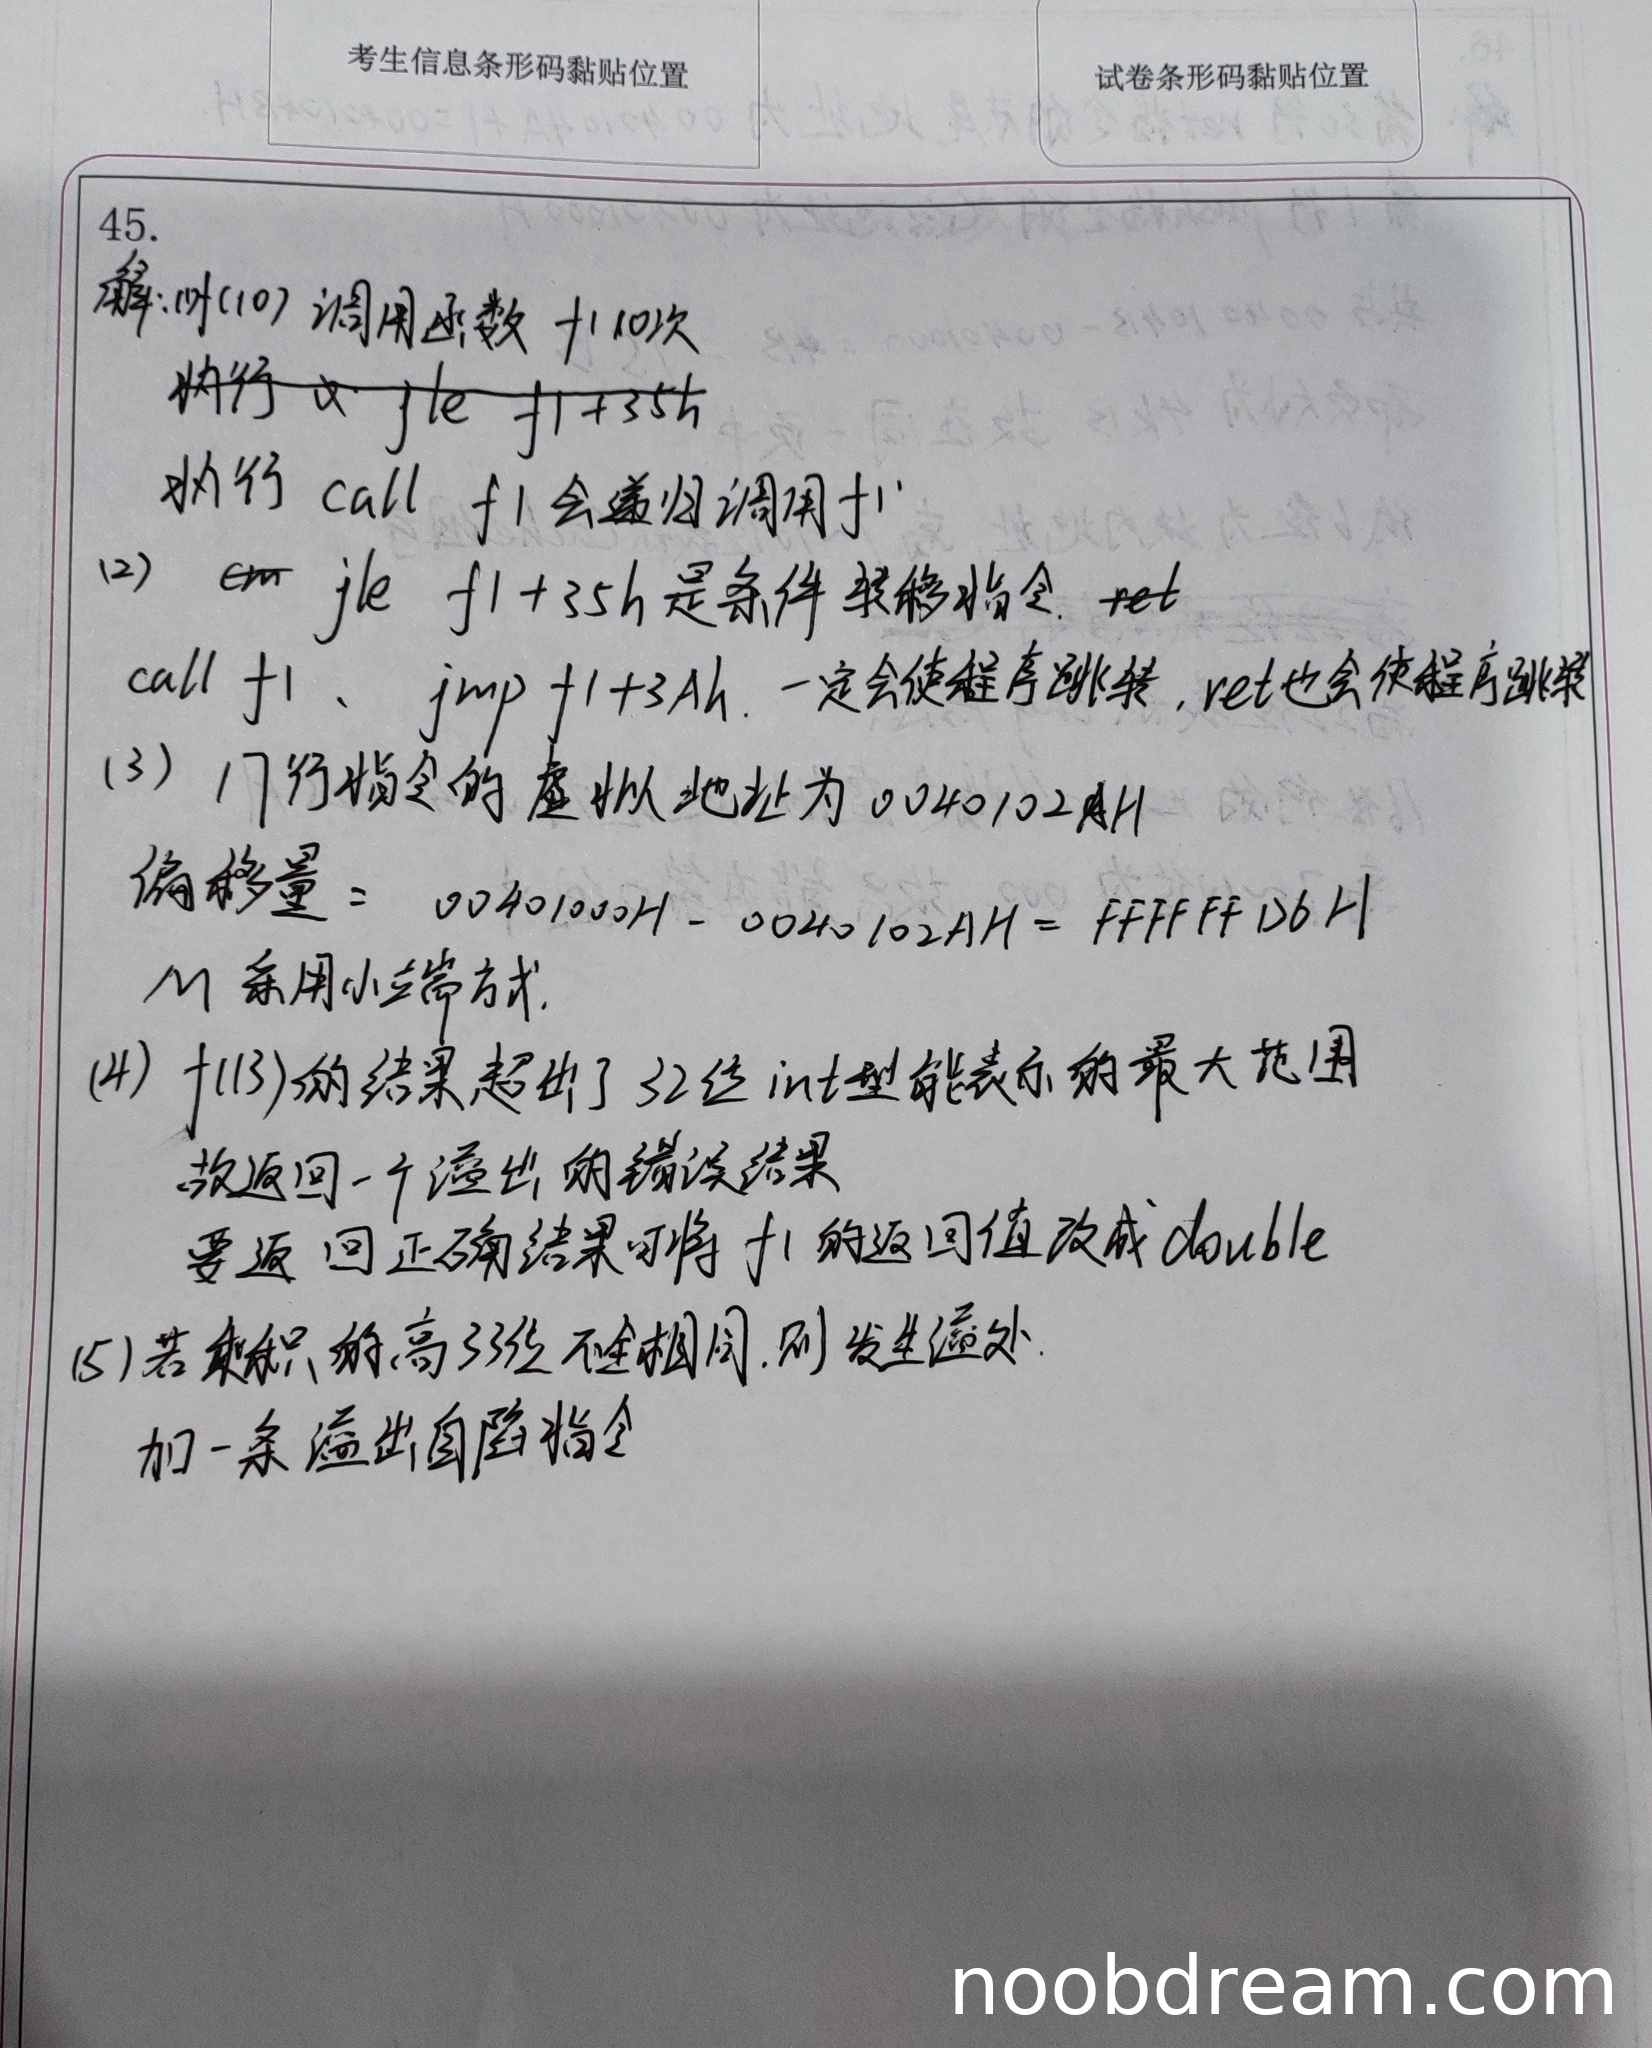 考生信息条形码黏贴位置
试卷条形码黏贴位置
45.
解:(1)f(10) 调用函数 f1 10次
执行 jle f1+35h
执行 call f1 会递归调用f1
(2) jle f1+35h 是条件转移指令. ret
call f1、 jmp f1+3Ah. 一定会使程序跳转,ret也会使程序跳转
(3) 17行指令的虚拟地址为 0040102AH
偏移量 = 00401000H - 0040102AH = FFFFFFD6H
M 采用小端方式.
(4) f(13)的结果超出了32位int型能表示的最大范围
故返回一个溢出的错误结果
要返回正确结果可将f1的返回值改成double
(5)若乘积的高33位不全相同.则发生溢处.
加一条溢出自陷指令
noobdream.com